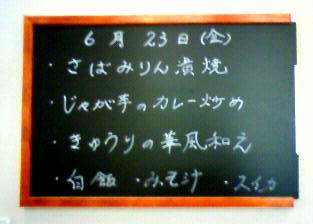 6月23日(金)
・さばみりん漬焼
・じゃが芋のカレー炒め
・きゅうりの華風和え
・白飯 ・みそ汁 ・スイカ